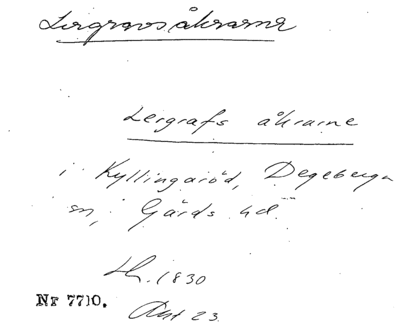 Lergravsåkrarna
Lergrafs åkrarne
i Kyllingaröd, Degeberga
sn, Gärds hd.
1830
Nr 7710.
Akt 23.